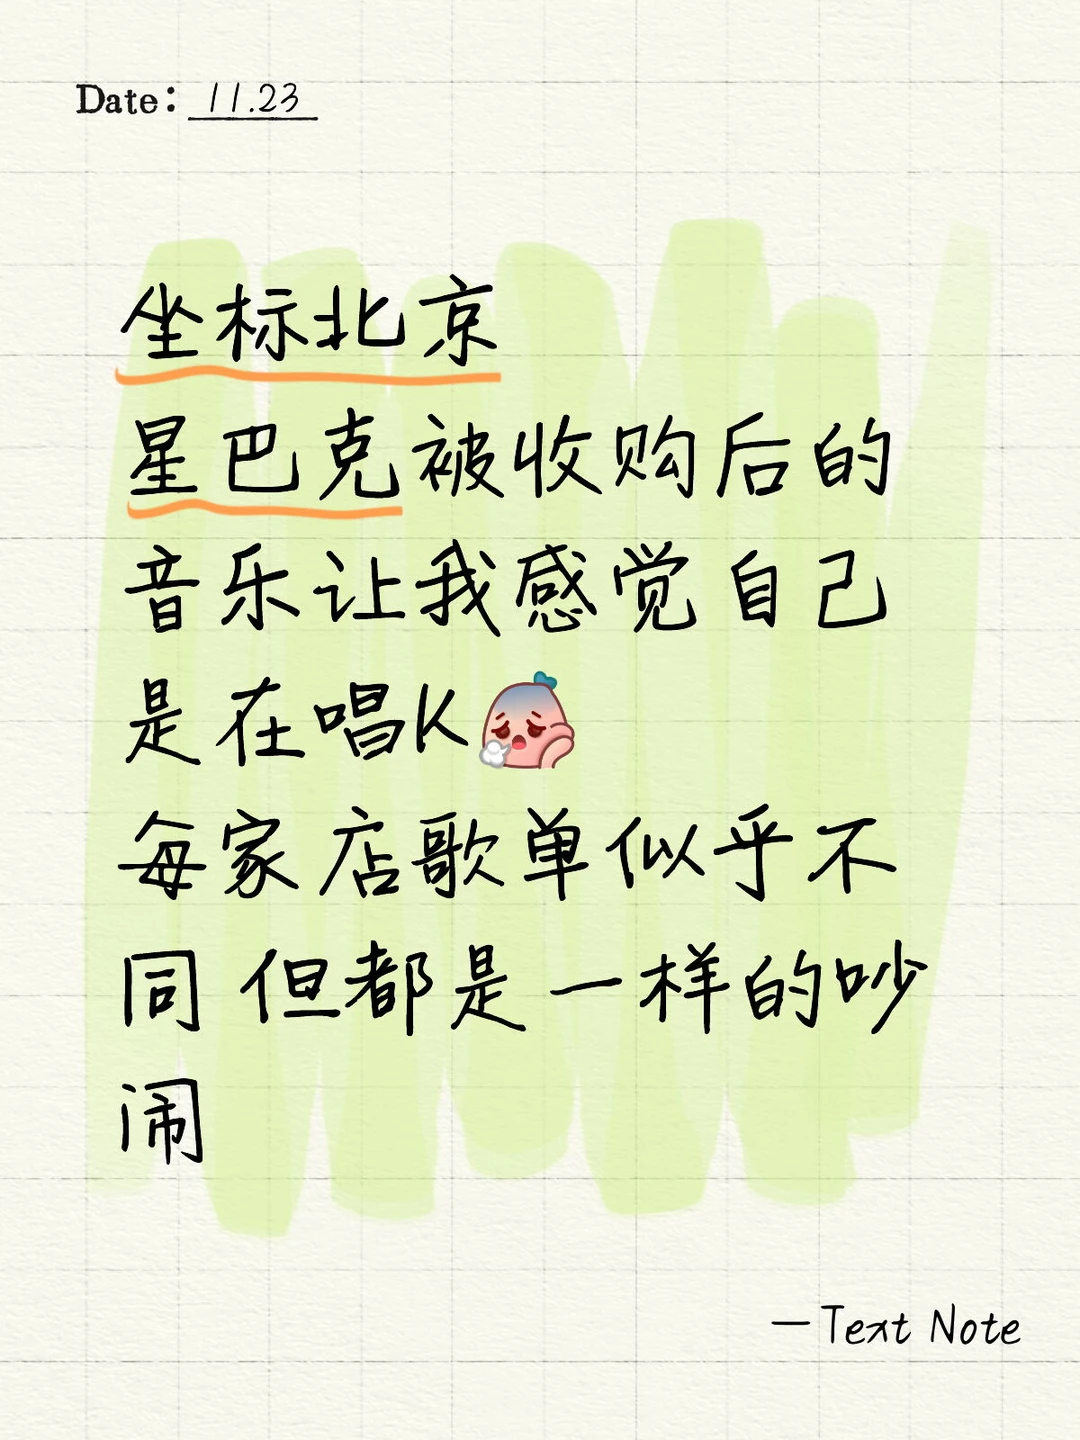 Date: 11.23
坐标北京
星巴克被收购后的
音乐让我感觉自己
是在唱K
每家店歌单似乎不
同 但都是一样的吵
闹
—Text Note